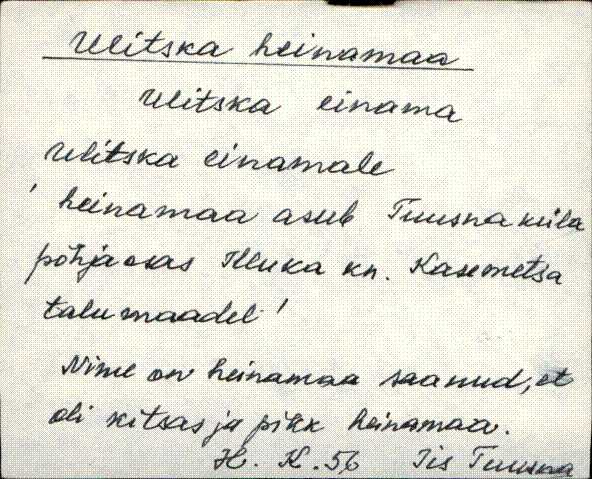 Ulitska heinamaa
Ulitska einama
Ulitska einamale
' heinamaa asub Tuusna küla
põhjaosas Illuka kn. Kasemetsa
talu maadel '
Nime on heinamaa saanud, et
oli kitsas ja pikk heinamaa.
H. K. 56 Iis Tuusna